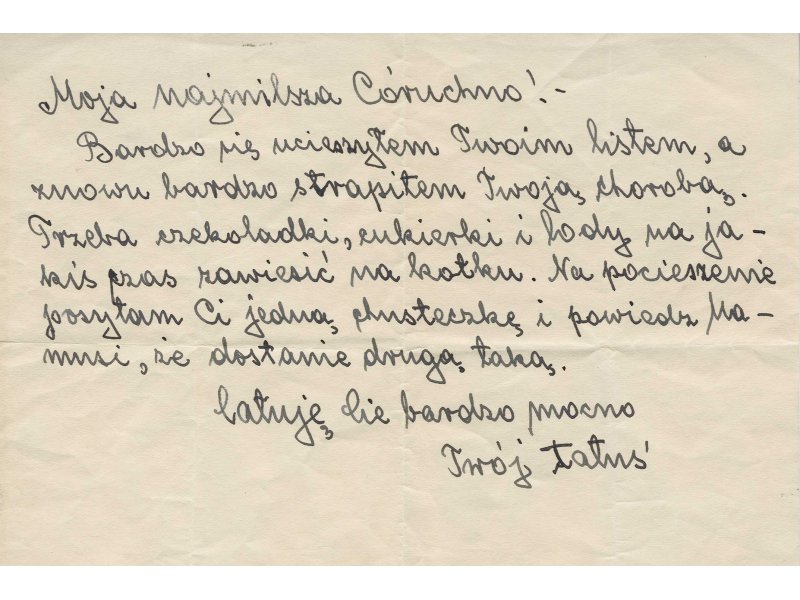 Moja najmilsza Córuchno! -
Bardzo się ucieszyłem Twoim listem, a
znowu bardzo strapiłem Twoją chorobą.
Trzeba czekoladki, cukierki i lody na ja-
kiś czas zawiesić na kołku. Na pocieszenie
posyłam Ci jedną chusteczkę i powiedz Ma-
musi, że dostanie drugą taką.
Całuję Cie bardzo mocno
Twój tatuś